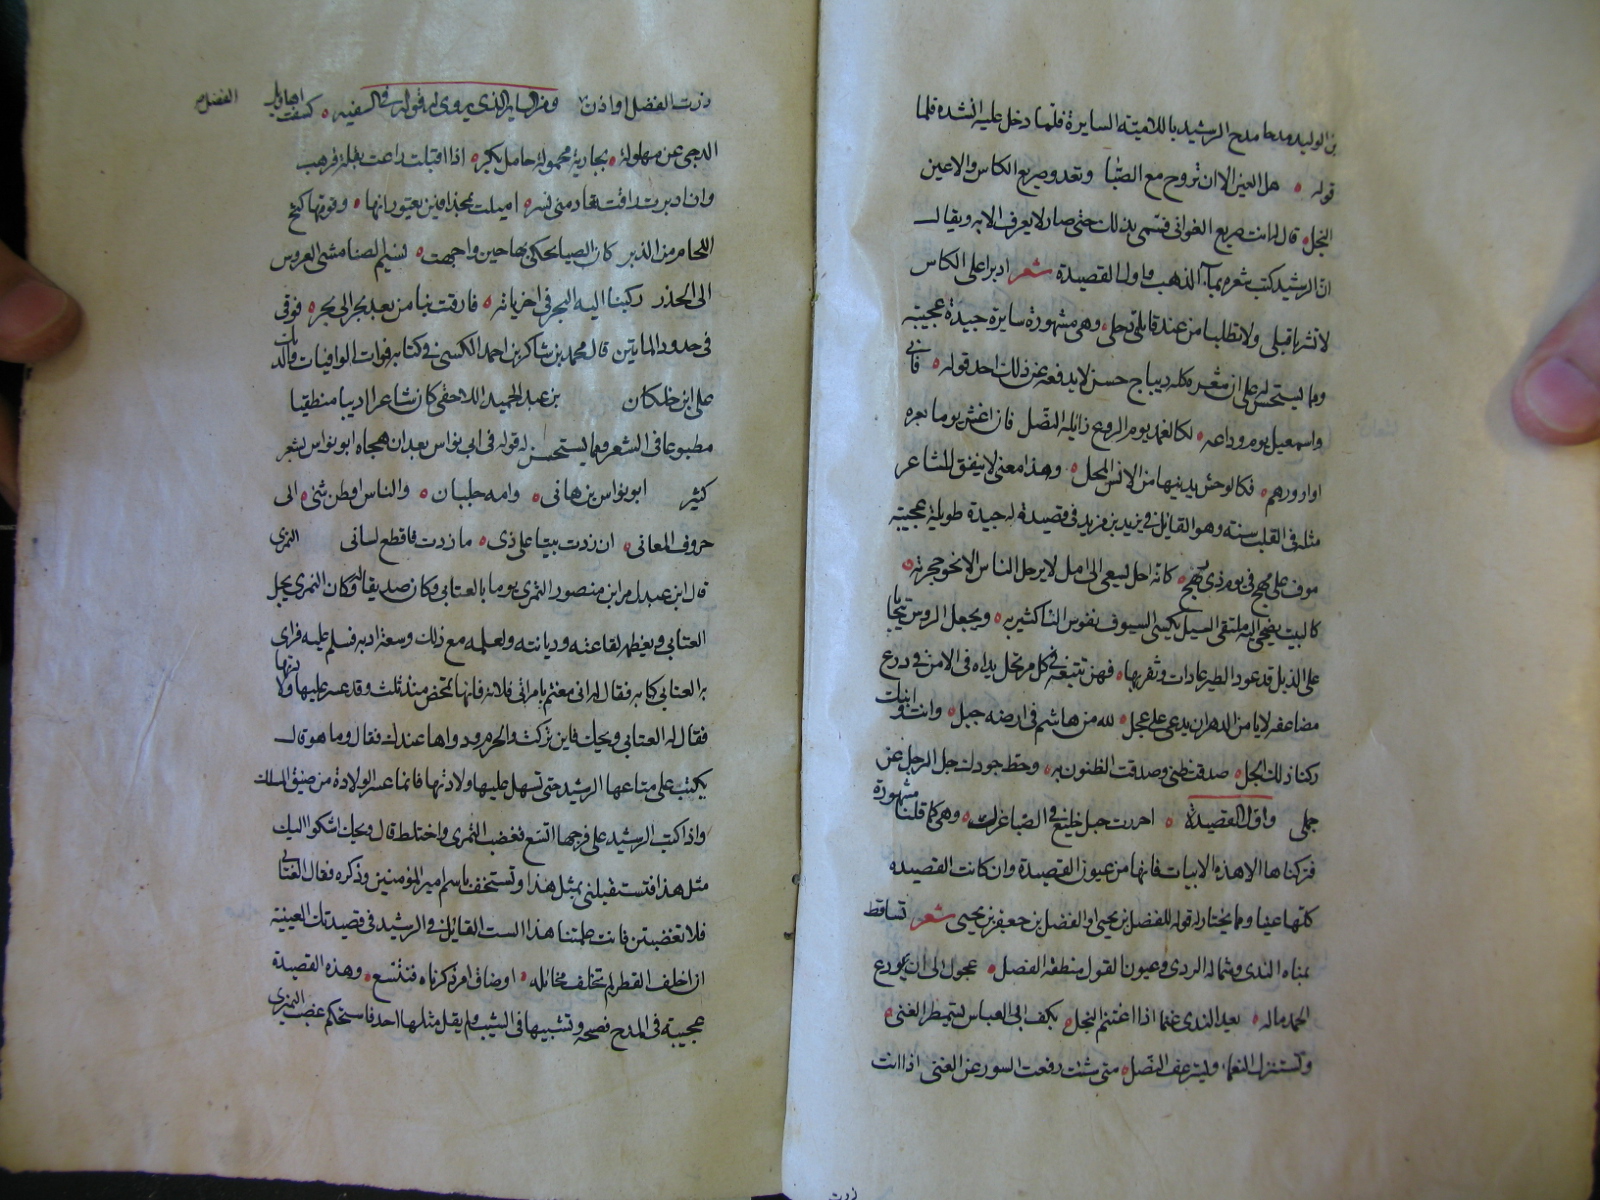 بن الوليد مدحا مدح الرشيد باللامية السايرة فلما دخل عليه انشده فلما
قوله هل العيش الا ان تروح مع الصبا وتغدو صريع الكاس والاعين
النجل قال له انت صريع الغواني فسمى بذلك حتى صار لا يعرف الا به ويقال
ان الرشيد كتب شعره بماء الذهب واول القصيدة شعر اديرا على الكاس
لا تشربا قبلي ولا تطلبا من عند قاتلتي ذحلي وهي مشهورة سايرة جيدة عجيبة
ومما يستحسن له على ان شعره كله ديباج حسن لا يدفعه عن ذلك احد قوله فاني
واسمعيل يوم وداعه لكالغمد يوم الروع زايله النصل فان اغش يوما بعده
او ازورهم فكالوحش يدنيها من الانس المحل وهذا معنى لا يتفق للشاعر
مثله في القلب سنة وهو القائل في يزيد بن مزيد في قصيدة له جيدة طويلة عجيبة
موف على مهج في يوم ذي رهج كانه اجل يسعى الى امل لا يرحل الناس الا نحو حجرته
كالبيت يضحي اليه ملتقى السبل يكسي السيوف نفوس الناكثين به ويجعل الروس تيجان
على الذبل قد عود الطير عادات وثقن بها فهن تتبعنه في كل مرتحل تراه في الامن في درع
مضاعفة لا يامن الدهر ان يدعى على عجل لله من هاشم في ارضه جبل وانت وابنك
ركنا ذلك الجبل صدقت ظني وصدقت الظنون به وحط جودك حل الرحل عن
جملي واول القصيدة اجررت حبل خليع في الصبا غزل وهي كما قلنا مشهورة
فتركناها الا هذه الابيات فانها من عيون القصيدة وان كانت القصيدة
كلها عينا ومما يختار له قوله للفضل بن يحيى او الفضل بن جعفر بن يحيى شعر تساقط
يمناه الندى وشماله الردى وعيون القول منطقه الفصل عجول الى ان يودع
الحمد ماله يعد الندى غنما اذا اغتنم البخل بكف ابي العباس يستمطر الغنى
وتستنزل النعما ويسترعف النصل متى شئت رفعت الستور عن الغنى اذا انت
زرت
زرت الفضل او اذن الفضل ومن الساير الذي يروى له قوله في السفينة كشفت اهاويل
الدجى عن مهوله بجارية محمولة حامل بكر اذا اقبلت راعت بقلة قرهب
وان ادبرت راقت بقادمتي نسر اميلت بمجذافين يعتورانها وقومها كبح
اللجام من الدبر كان الصبا يحكي بها حين واجهت نسيم الصبا مشي العروس
الى الخدر ركبنا اليه البحر في اخرياته فاوفت بنا من بعد بحر الى بحر توفي
في حدود المايتين قال محمد بن شاكر بن احمد الكتبي في كتابه فوات الوافيات والذيل
على ابن خلكان بن عبد الحميد اللاحقي كان شاعرا اديبا منطقيا
مطبوعا في الشعر ومما يستحسن له قوله في ابي نواس بعد ان هجاه ابو نواس بشعر
كثير ابو نواس بن هاني وامه جلبان والناس افطن شي الى
حروف المعاني ان زدت بيتا على ذي ما زدت فاقطع لساني النمري
قال ابن عبدل مر ابن منصور النمري يوما بالعتابي وكان صديقا له وكان النمري يجل
العتابي ويعظمه لقناعته وديانته ولعلمه مع ذلك وسعة ادبه فسلم عليه فراى
به العتابي كابة فقال له اني مغتم بامراتي فلانة فانها تمخض منذ ثلث وقد عسر عليها ولادتها
فقال له العتابي ويحك فاين تركت والحرم ودواها عندك فقال وما هو قال
يكتب على متاعها الرشيد حتى تسهل عليها ولادتها فانما عسر الولادة من ضيق المسلك
واذا كتب الرشيد على فرجها اتسع فغضب النمري واختلط قال ويحك اشكو اليك
مثل هذا فتستقبلني بمثل هذا وتستخف باسم امير المؤمنين وذكره فقال العتابي
فلا تغضبن فانت علمتنا هذا الست القائل في الرشيد في قصيدتك العينية
ان اخلف القطر لم تخلف مخائله او ضاق امر ذكرناه فتتسع وهذه القصيدة
عجيبة في المدح فصحه وتشبيبها في الشيب ولم يقل مثلها احد فاستحكم غضب النمري